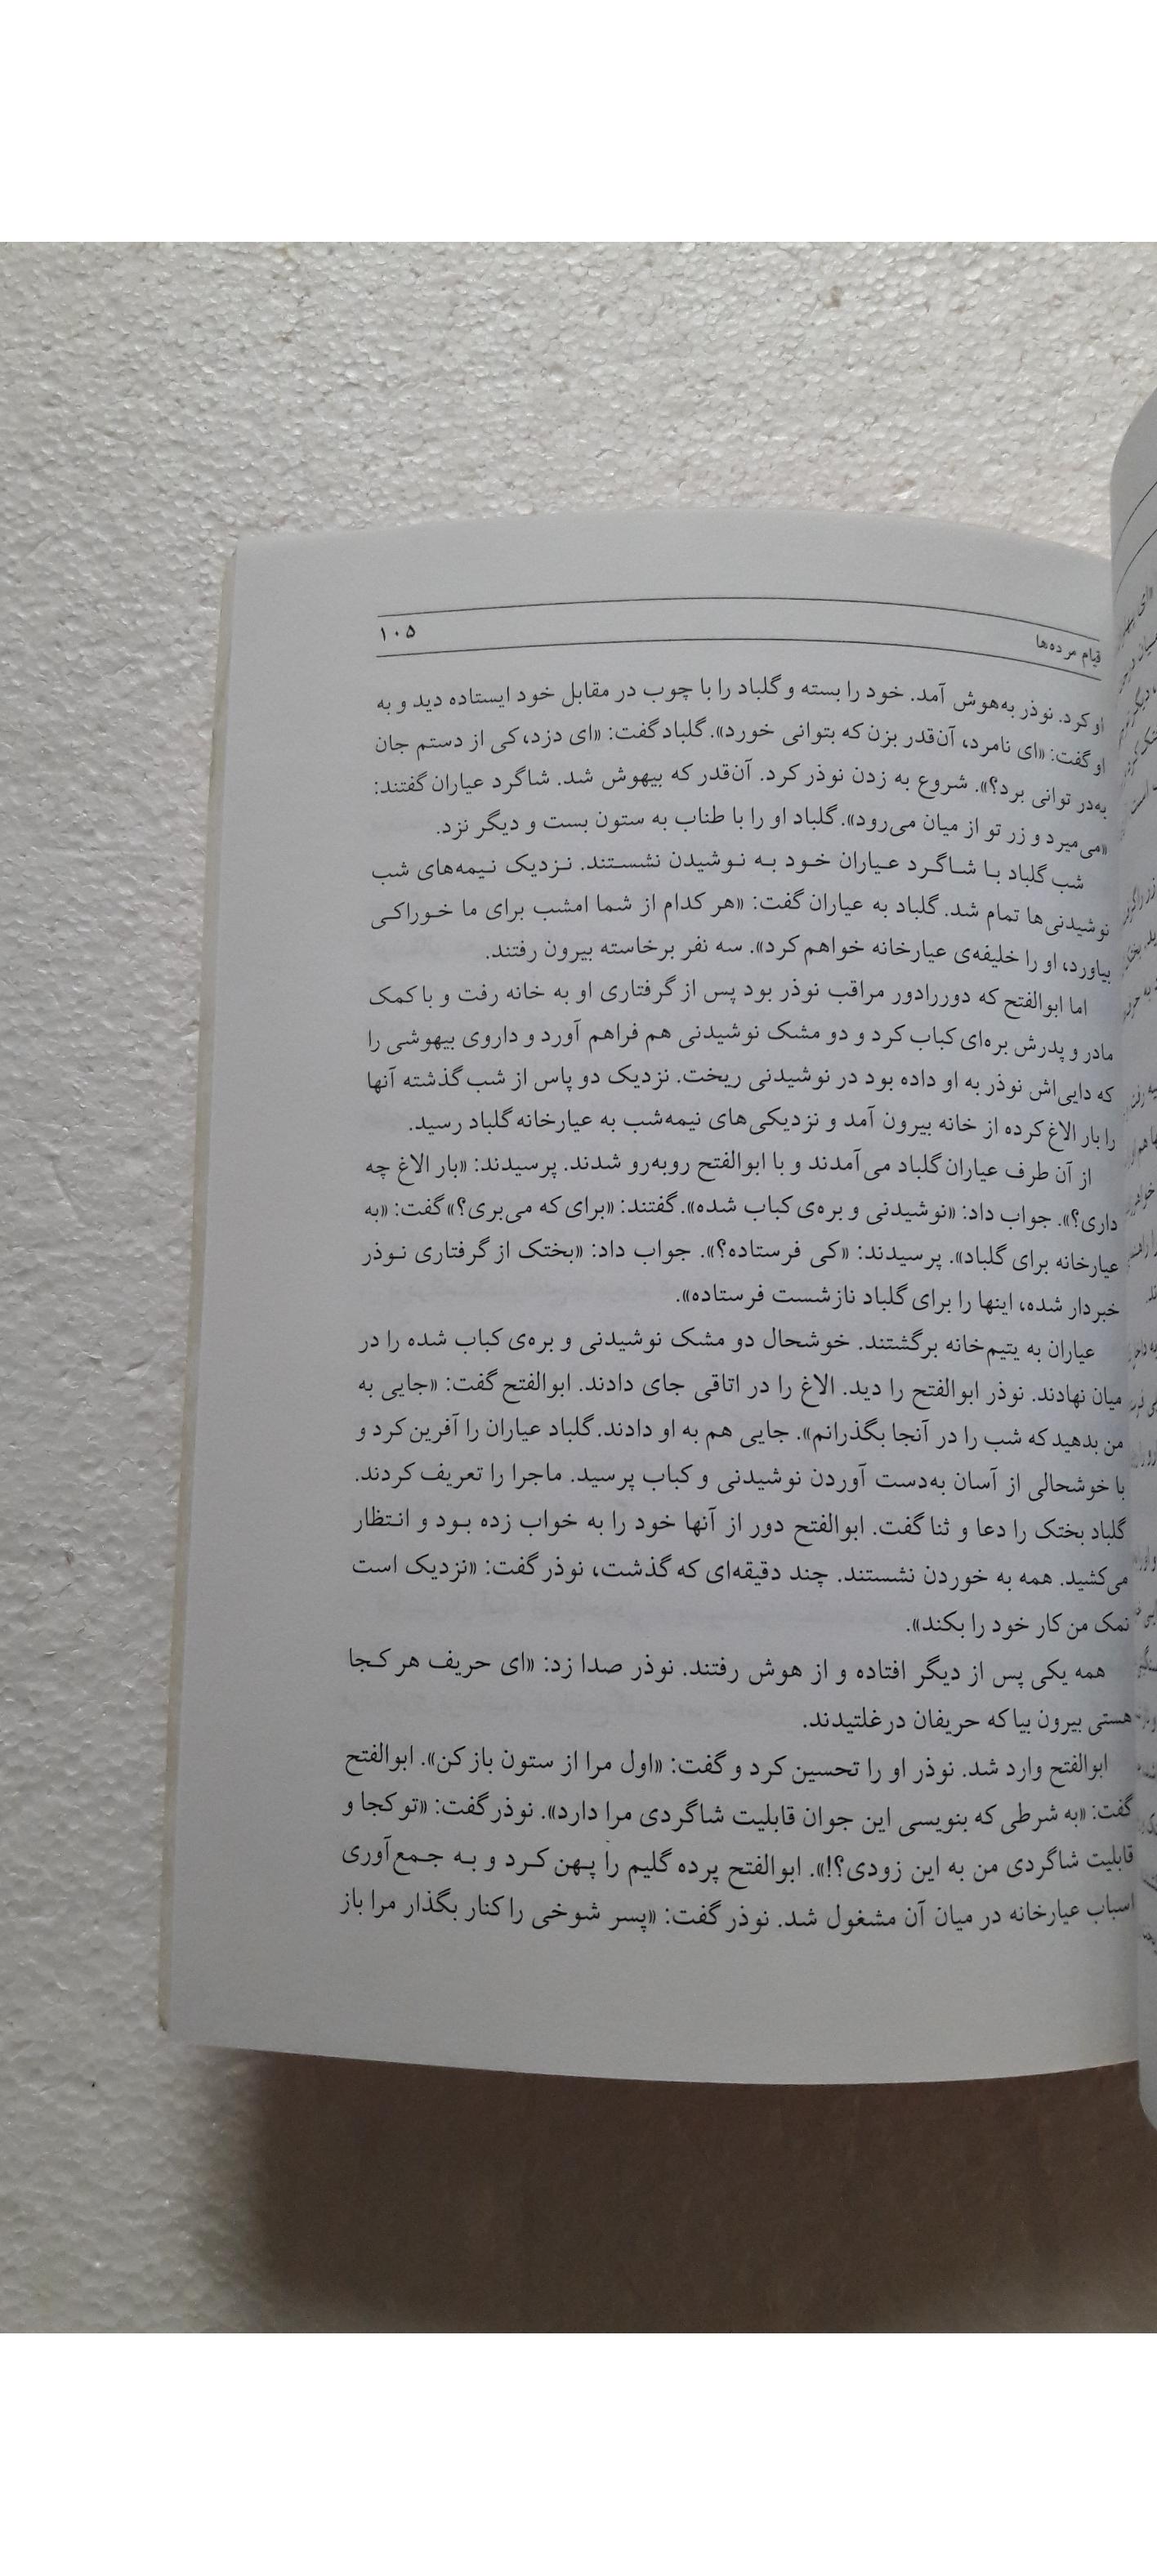 قیام مرده‌ها
۱۰۵
او کرد. نوذر به‌هوش آمد. خود را بسته و گلباد را با چوب در مقابل خود ایستاده دید و به
او گفت: «ای نامرد، آن‌قدر بزن که بتوانی خورد». گلباد گفت: «ای دزد، کی از دستم جان
به‌در توانی برد؟». شروع به زدن نوذر کرد. آن‌قدر که بیهوش شد. شاگرد عیاران گفتند:
«می‌میرد و زر تو از میان می‌رود». گلباد او را با طناب به ستون بست و دیگر نزد.
شب گلباد با شاگرد عیاران خود به نوشیدن نشستند. نزدیک نیمه‌های شب
نوشیدنی‌ها تمام شد. گلباد به عیاران گفت: «هر کدام از شما امشب برای ما خوراکی
بیاورد، او را خلیفه‌ی عیارخانه خواهم کرد». سه نفر برخاسته بیرون رفتند.
اما ابوالفتح که دوررادور مراقب نوذر بود پس از گرفتاری او به خانه رفت و با کمک
مادر و پدرش بره‌ای کباب کرد و دو مشک نوشیدنی هم فراهم آورد و داروی بیهوشی را
که دایی‌اش نوذر به او داده بود در نوشیدنی ریخت. نزدیک دو پاس از شب گذشته آنها
را بار الاغ کرده از خانه بیرون آمد و نزدیکی‌های نیمه‌شب به عیارخانه گلباد رسید.
از آن طرف عیاران گلباد می‌آمدند و با ابوالفتح روبه‌رو شدند. پرسیدند: «بار الاغ چه
داری؟». جواب داد: «نوشیدنی و بره‌ی کباب شده». گفتند: «برای که می‌بری؟» گفت: «به
عیارخانه برای گلباد». پرسیدند: «کی فرستاده؟». جواب داد: «بختک از گرفتاری نوذر
خبردار شده، اینها را برای گلباد نازشست فرستاده».
عیاران به یتیم‌خانه برگشتند. خوشحال دو مشک نوشیدنی و بره‌ی کباب شده را در
میان نهادند. نوذر ابوالفتح را دید. الاغ را در اتاقی جای دادند. ابوالفتح گفت: «جایی به
من بدهید که شب را در آنجا بگذرانم». جایی هم به او دادند. گلباد عیاران را آفرین کرد و
با خوشحالی از آسان به‌دست آوردن نوشیدنی و کباب پرسید. ماجرا را تعریف کردند.
گلباد بختک را دعا و ثنا گفت. ابوالفتح دور از آنها خود را به خواب زده بود و انتظار
می‌کشید. همه به خوردن نشستند. چند دقیقه‌ای که گذشت، نوذر گفت: «نزدیک است
نمک من کار خود را بکند».
همه یکی پس از دیگر افتاده و از هوش رفتند. نوذر صدا زد: «ای حریف هر کجا
هستی بیرون بیا که حریفان درغلتیدند.
ابوالفتح وارد شد. نوذر او را تحسین کرد و گفت: «اول مرا از ستون باز کن». ابوالفتح
گفت: «به شرطی که بنویسی این جوان قابلیت شاگردی مرا دارد». نوذر گفت: «تو کجا و
قابلیت شاگردی من به این زودی؟!». ابوالفتح پرده گلیم را پهن کرد و به جمع‌آوری
اسباب عیارخانه در میان آن مشغول شد. نوذر گفت: «پسر شوخی را کنار بگذار مرا باز